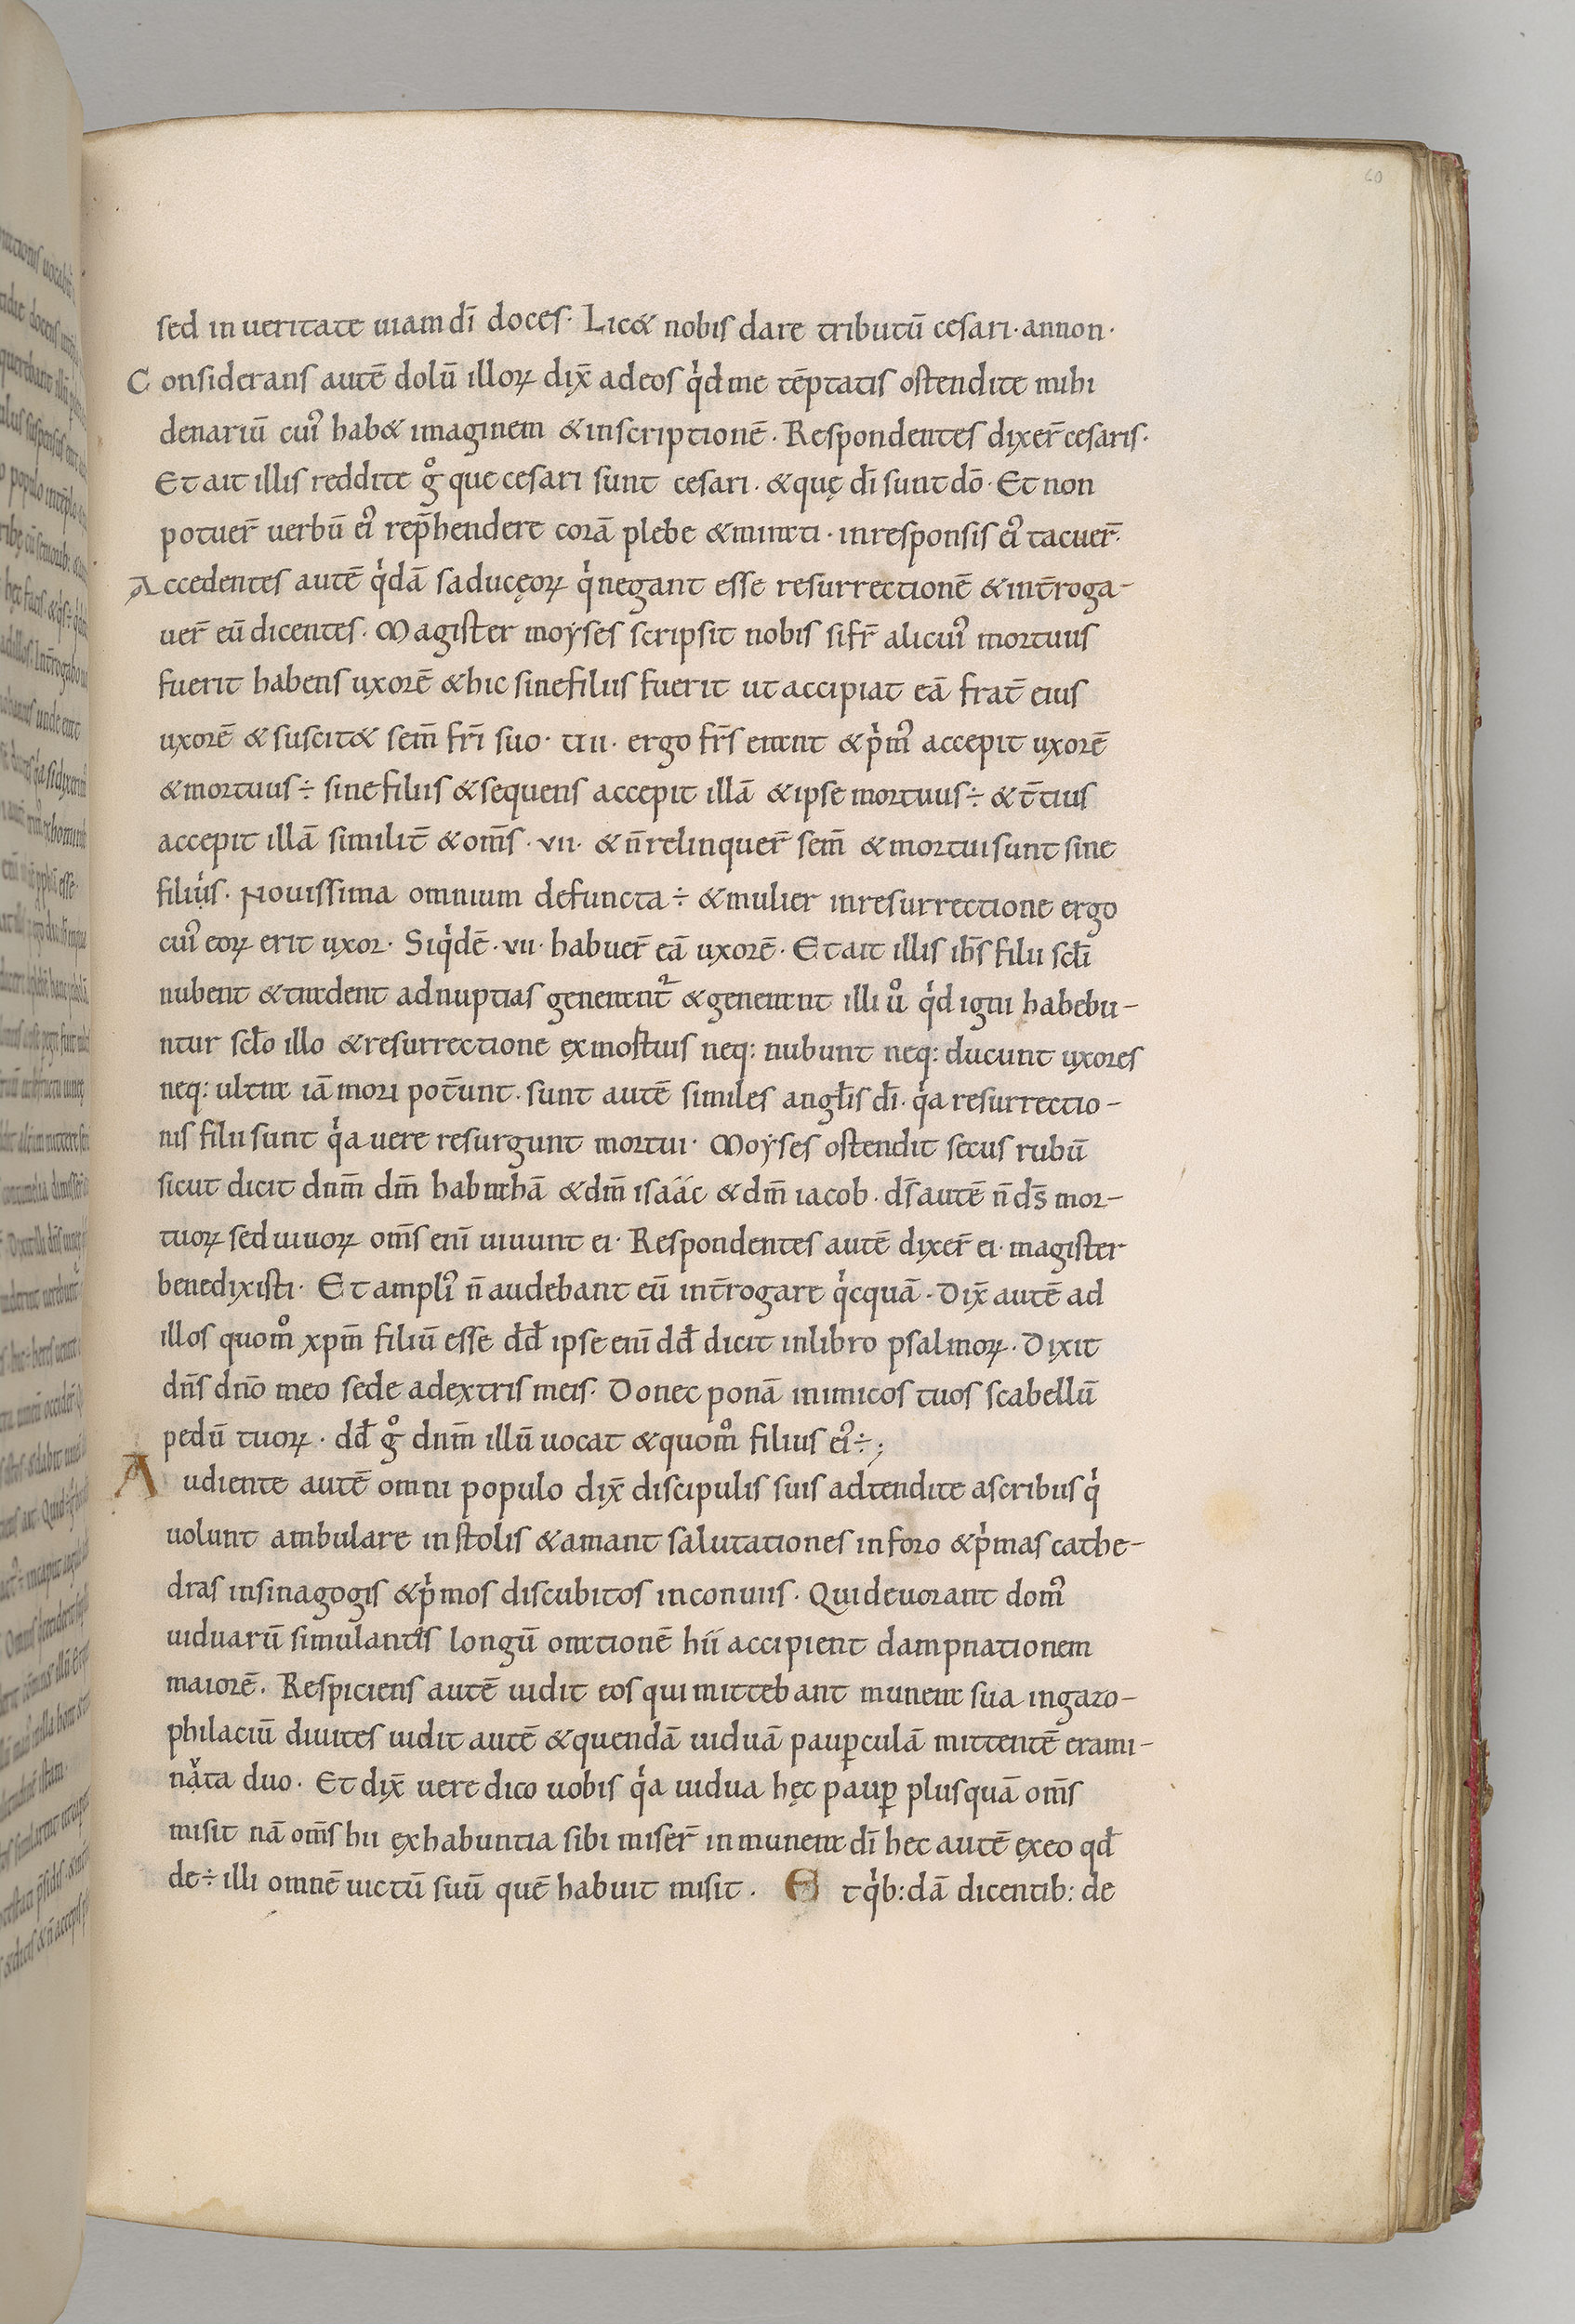 60
sed in ueritate uiam dī doces· Lic& nobis dare tributū cesari· annon·
Considerans autē dolū illoꝝ dix̄ adeos qͥd me tēptatis ostendite mihi
denariū cuiꝰ hab& imaginem & inscriptionē· Respondentes dixer̄ cesaris·
Et ait illis reddite gͦ que cesari sunt cesari· & quę dī sunt dō· Et non
potuer̄ uerbū eiꝰ rep̄hendere corā plebe & mirati· in responsis eiꝰ tacuer̄·
Accedentes autē qͥdā saducęoꝝ qͥ negant esse resurrectionē & int̄roga-
uer̄ eū dicentes· Magister moẏses scripsit nobis si fr̄ alicuiꝰ mortuus
fuerit habens uxorē & hic sine filiis fuerit ut accipiat eā frat̄ eius
uxorē & suscit& sem̄ fr̄i suo· uii· ergo fr̄s erant & pͥmꝰ accepit uxorē
& mortuus÷ sine filiis & sequens accepit illā & ipse mortuus÷ & t̄tius
accepit illā similit̄ & om̄s· vii· & n̄ relinquer̄ sem̄ & mortui sunt sine
filiis· Nouissima omnium defuncta÷ & mulier in resurrectione ergo
cuiꝰ eoꝝ erit uxor· Siqͥdē· vii· habuer̄ eā uxorē· Et ait illis ih̄s filii scl̄i
nubent & tradent ad nuptias generant᷑ & generant illi uͦ qͥ digni habebu-
ntur scl̄o illo & resurrectione ex mostuis neq: nubunt neq: ducunt uxores
neq: ultra iā mori pot̄unt· sunt autē similes angl̄is dī· qͥa resurrectio-
nis filii sunt qͥa uere resurgunt mortui· Moẏses ostendit secus rubū
sicut dicit dnm̄ dm̄ habrahā & dm̄ isáác & dm̄ iacob· ds̄ autē n̄ ds̄ mor-
tuoꝝ sed uiuoꝝ om̄s enī uiuunt ei· Respondentes autē dixer̄ ei· magister
bene dixisti· Et ampliꝰ n̄ audebant eū int̄rogare qͥcquā· Dix̄ autē ad
illos quomͦ xpm̄ filiū esse dd̄ ipse enī dd̄ dicit in libro psalmoꝝ· Dixit
dn̄s dn̄o meo sede a dextris meis· Donec ponā inimicos tuos scabellū
pedū tuoꝝ· dd̄ gͦ dnm̄ illū uocat & quomͦ filius eiꝰ÷;
Audiente autē omni populo dix̄ discipulis suis adtendite a scribus qͥ
uolunt ambulare in stolis & amant salutationes in foro & pͥmas cathe-
dras in sinagogis & pͥmos discubitos in conuiis· Qui deuorant domꝰ
uiduarū simulantes longū orationē híí accipient dampnationem
maiorē· Respiciens autē uidit eos qui mittebant munera sua in gazo-
philaciū diuites uidit autē & quendā uiduā paup̱culā mittentē erami-
nͣta duo· Et dix̄ uere dico uobis qͥa uidua hęc paup̱ plus quā om̄s
misit nā om̄s hii ex habuntia sibi miser̄ in munera dī hec autē ex eo qd̄
de÷ illi omnē uictū suū quē habuit misit· Et qͥb:dā dicentib: de